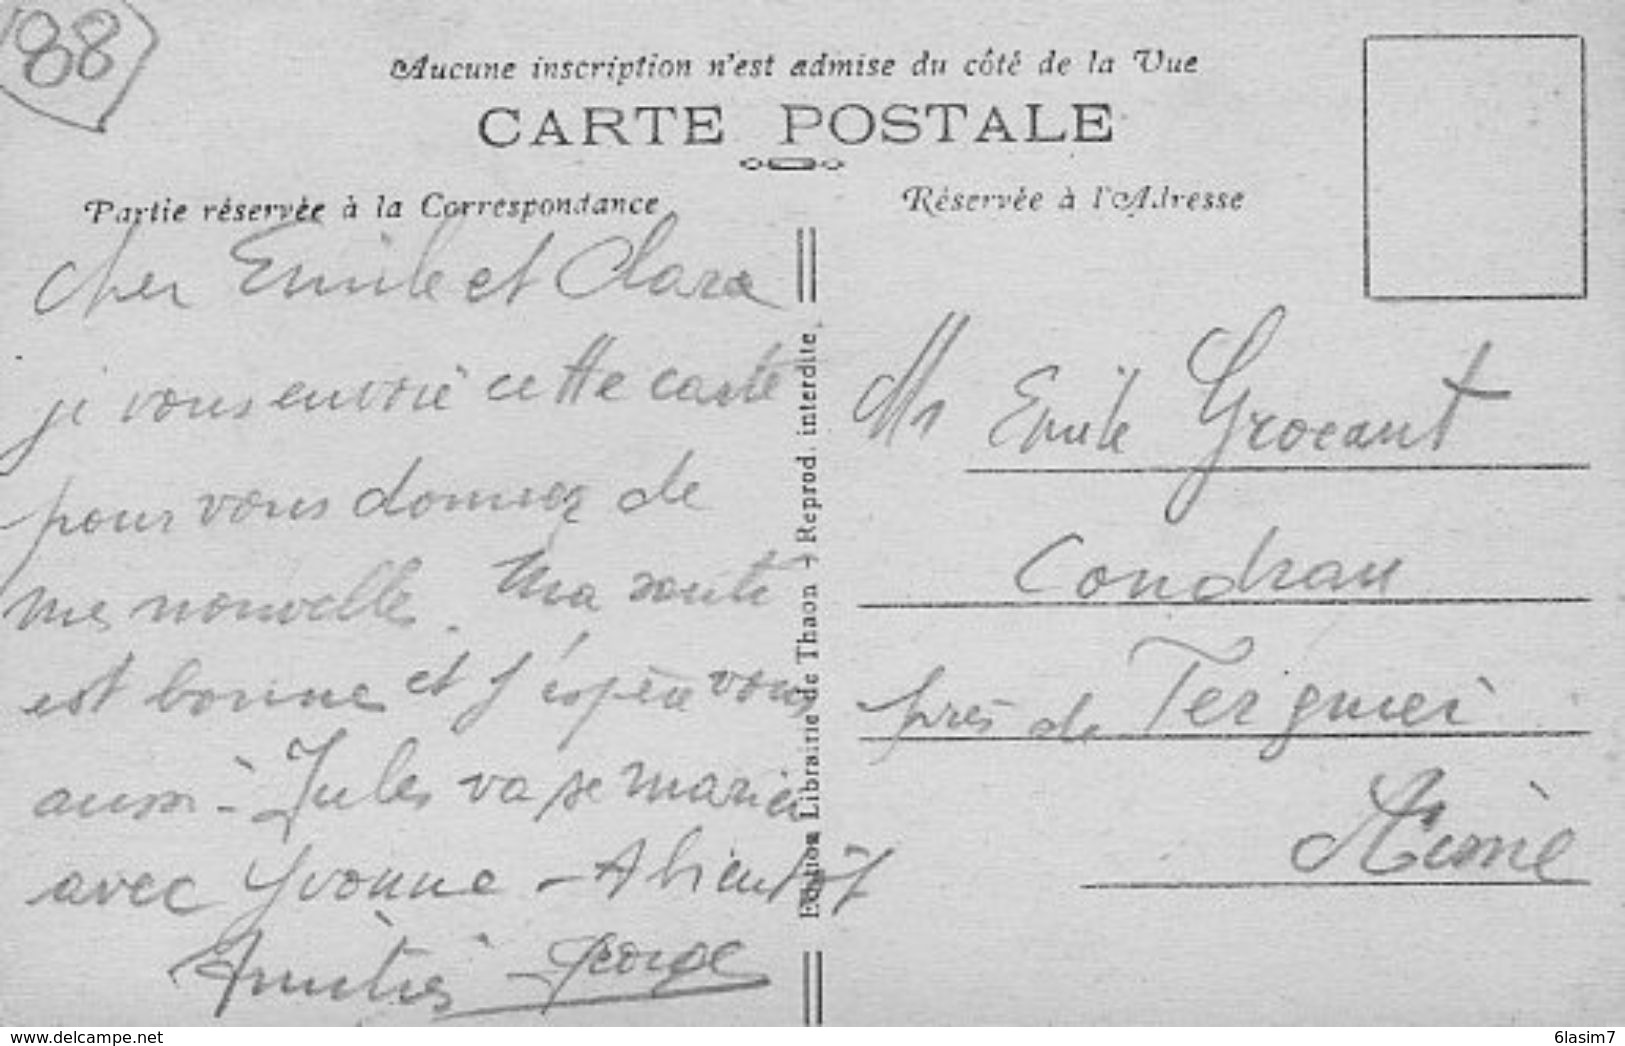 88
Aucune inscription n'est admise du côté de la Vue
CARTE POSTALE
Partie réservée à la Correspondance
Réservée à l'Adresse
Cher Emile et Clara
je vous envoie cette carte
pour vous donnez de
mes nouvelle. Ma santé
est bonne et j'espère vous
aussi - Jules va se marier
avec Yvonne - A bientôt
Amitiés George
Edition Librairie de Thaon - Reprod. interdite
Mr Emile Grocaut
Condran
près de Tergnier
Aisne
www.delcampe.net
6lasim7